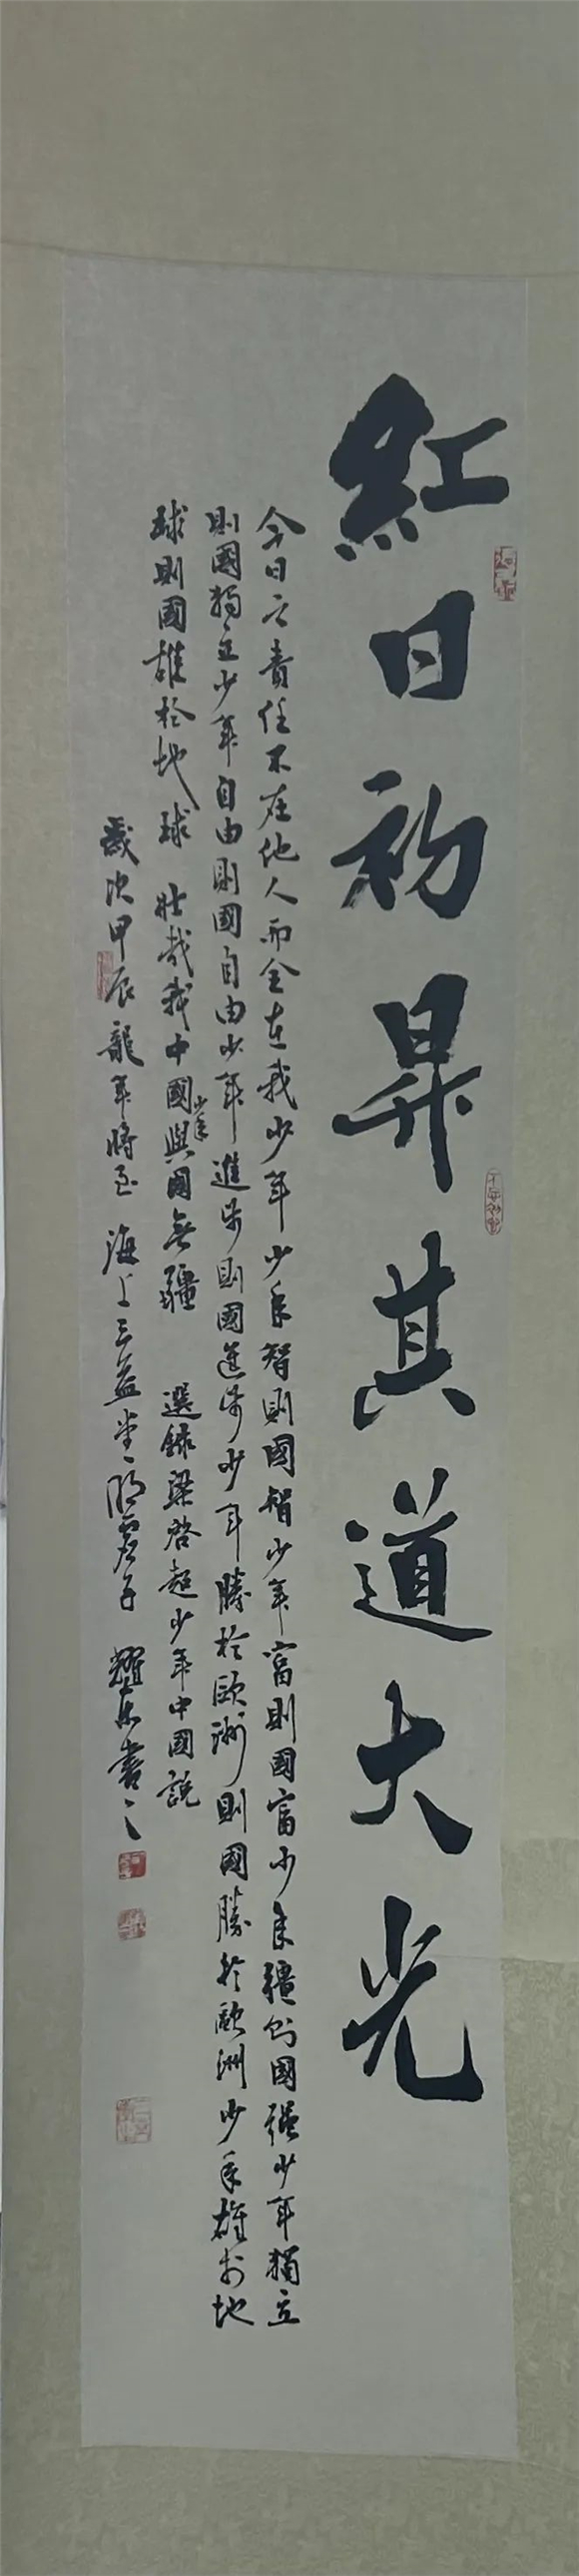 紅日初昇其道大光
今日之責任不在他人而全在我少年少年智則國智少年富則國富少年彊則國強少年獨立
則國獨立少年自由則國自由少年進步則國進步少年勝於歐洲則國勝於歐洲少年雄於地
球則國雄於地球 壯哉我中國少年與國無疆 選錄梁啓超少年中國說
歲次甲辰龍年將至 海上三益堂 明虛子 耀東書之